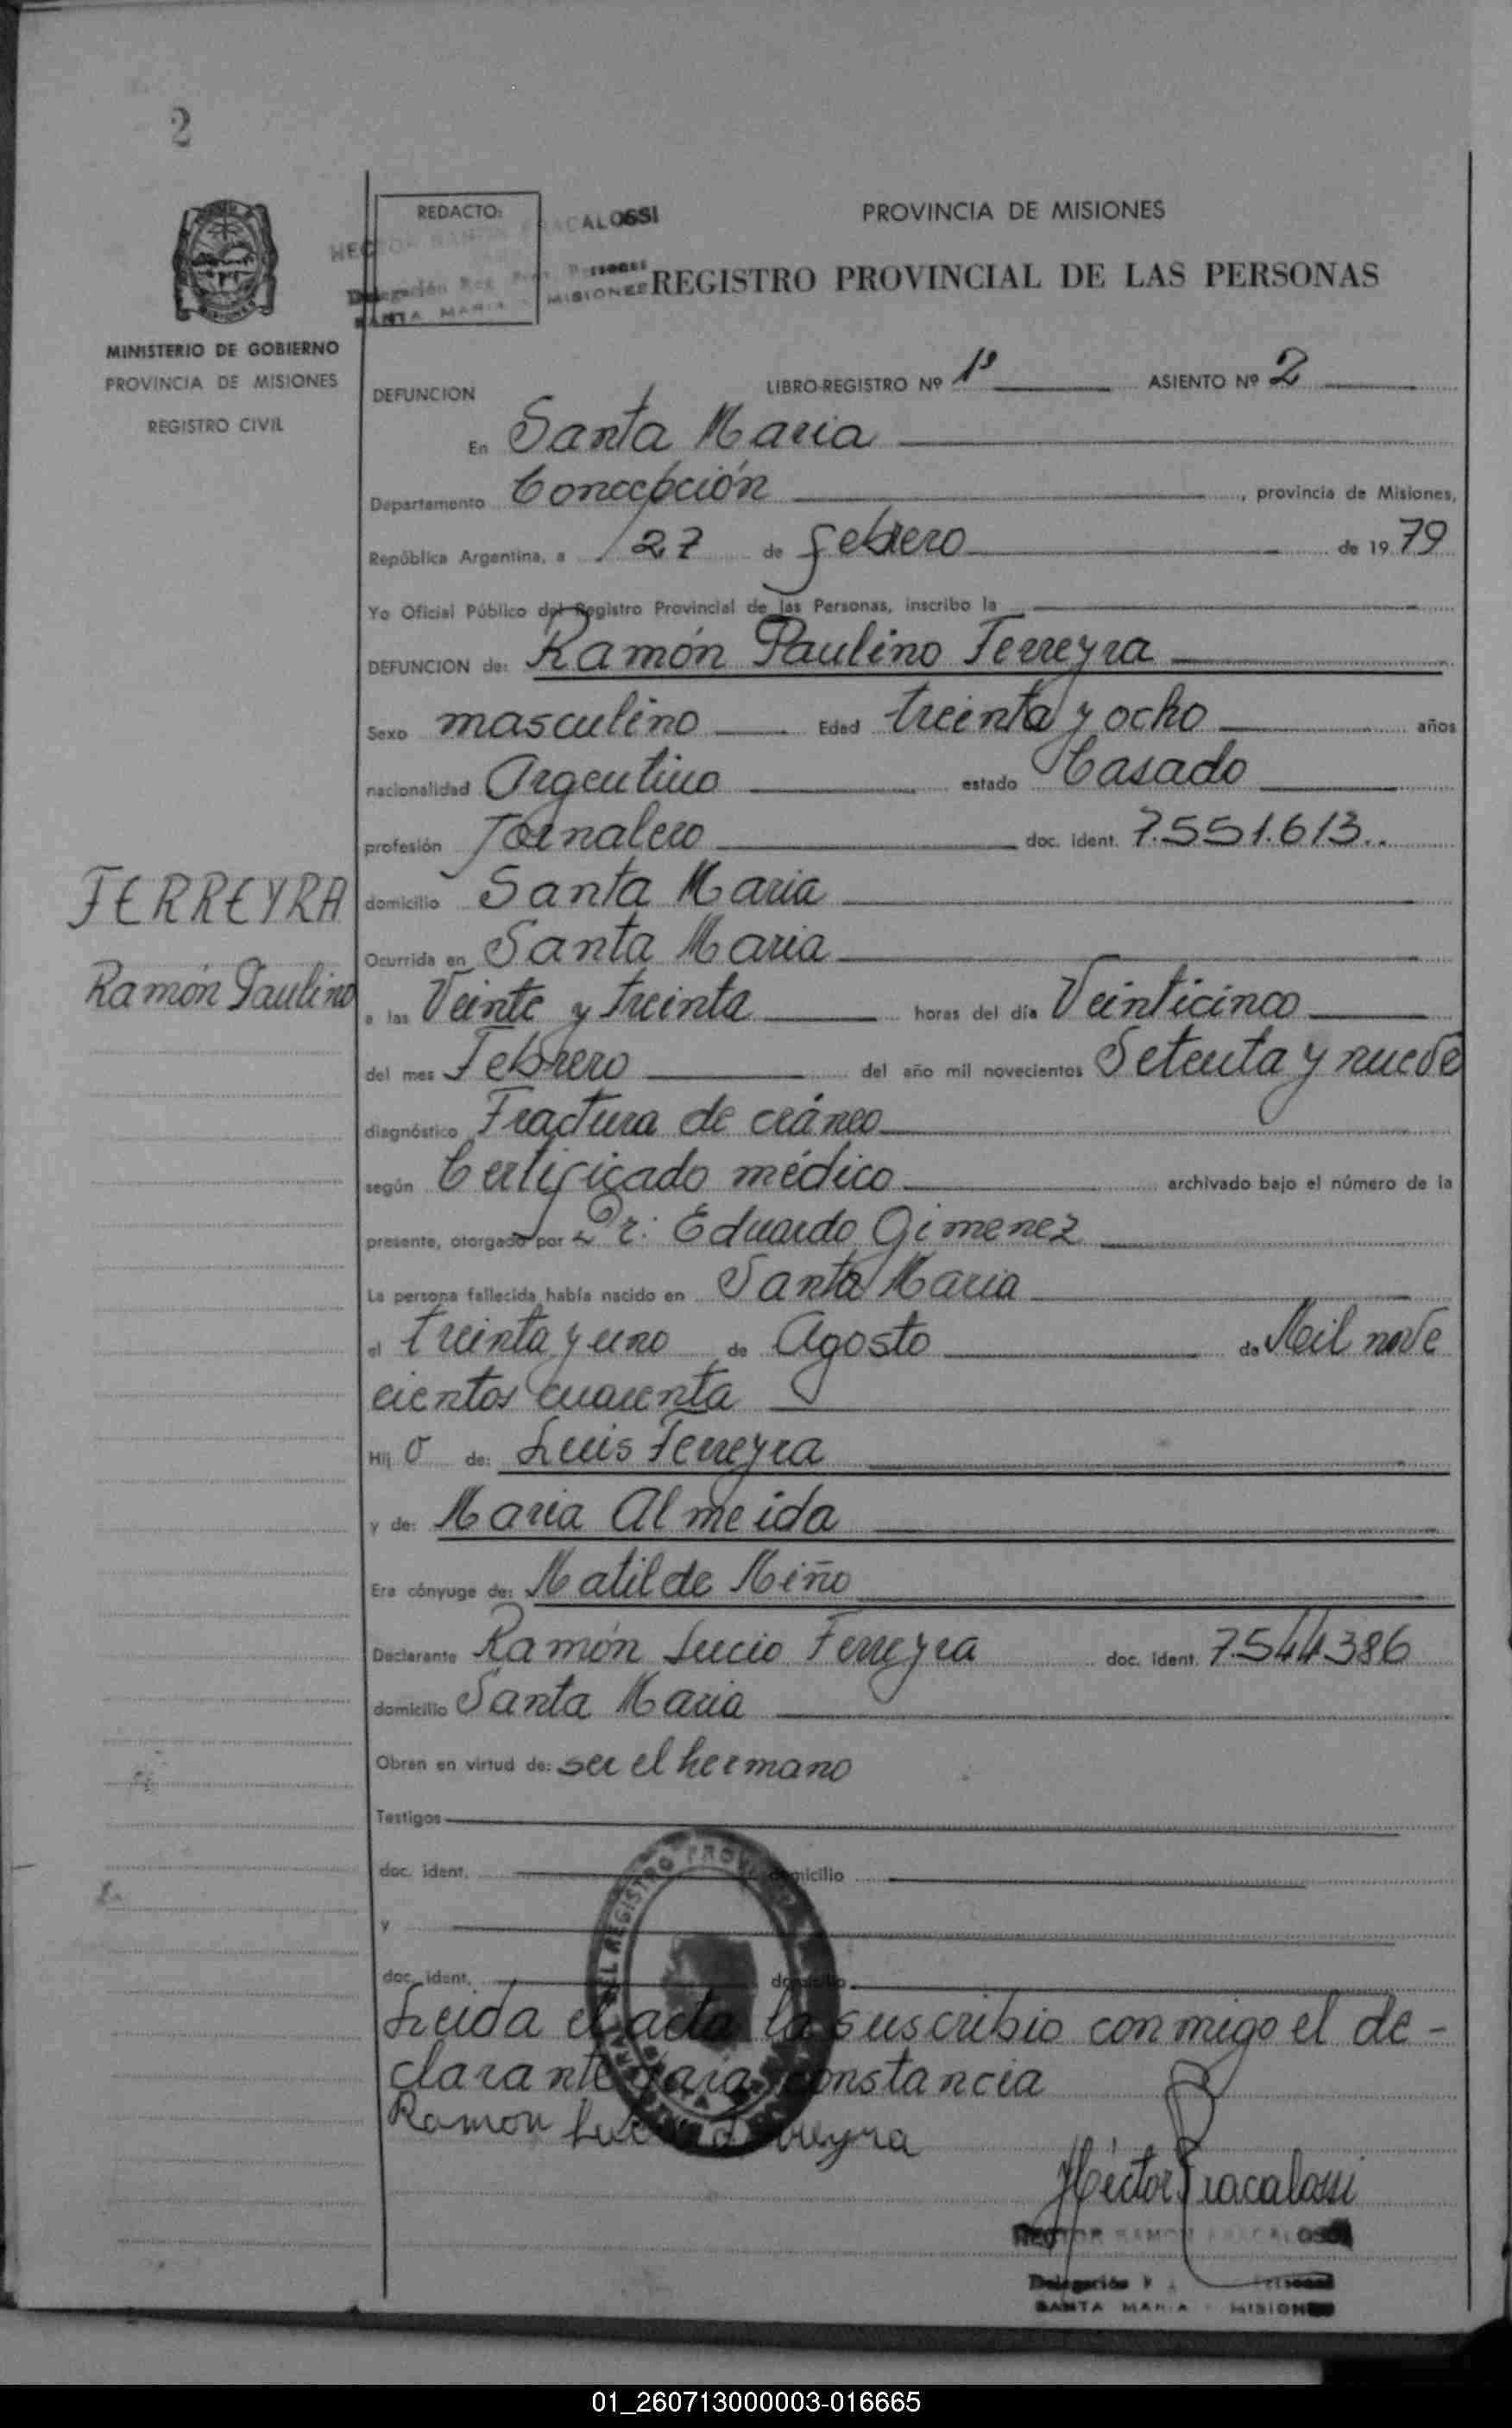 2
REDACTO:
HECTOR RAMON FRACALOSSI
SANTA MARIA - MISIONES
PROVINCIA DE MISIONES
REGISTRO PROVINCIAL DE LAS PERSONAS
MINISTERIO DE GOBIERNO
PROVINCIA DE MISIONES
REGISTRO CIVIL
DEFUNCION LIBRO-REGISTRO Nº 1º ASIENTO Nº 2
En Santa Maria
Departamento Concepción, provincia de Misiones,
República Argentina, a 27 de febrero de 1979
Yo Oficial Público del Registro Provincial de las Personas, inscribo la
DEFUNCION de: Ramón Paulino Ferreyra
Sexo masculino Edad treinta y ocho años
nacionalidad Argentino estado Casado
profesión Jornalero doc. ident. 7.551.613..
FERREYRA
Ramón Paulino
domicilio Santa Maria
Ocurrida en Santa Maria
a las Veinte y treinta horas del día Veinticinco
del mes Febrero del año mil novecientos Setenta y nueve
diagnóstico Fractura de cráneo
según Certificado médico archivado bajo el número de la
presente, otorgado por Dr: Eduardo Gimenez
La persona fallecida había nacido en Santa Maria
el treinta y uno de Agosto de Mil nove
cientos cuarenta
Hij o de: Luis Ferreyra
y de: Maria Almeida
Era cónyuge de: Matilde Miño
Declarante Ramón Lucio Ferreyra doc. ident. 7.544.386
domicilio Santa Maria
Obran en virtud de: ser el hermano
Testigos
doc. ident. domicilio
y
doc. ident. domicilio
Leida el acta la suscribio conmigo el de-
clarante para constancia
Ramon Lucio Ferreyra
Héctor Fracalossi
HECTOR RAMON FRACALOSSI
SANTA MARIA - MISIONES
01_260713000003-016665